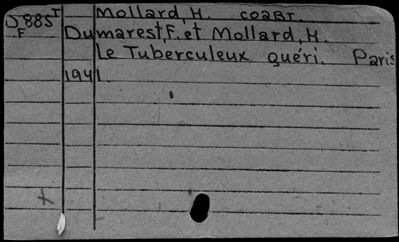 J885T Mollard H. coавт.
F Dumarest, F. et Mollard, H.
Le Tuberculeux guéri. Paris
1941.